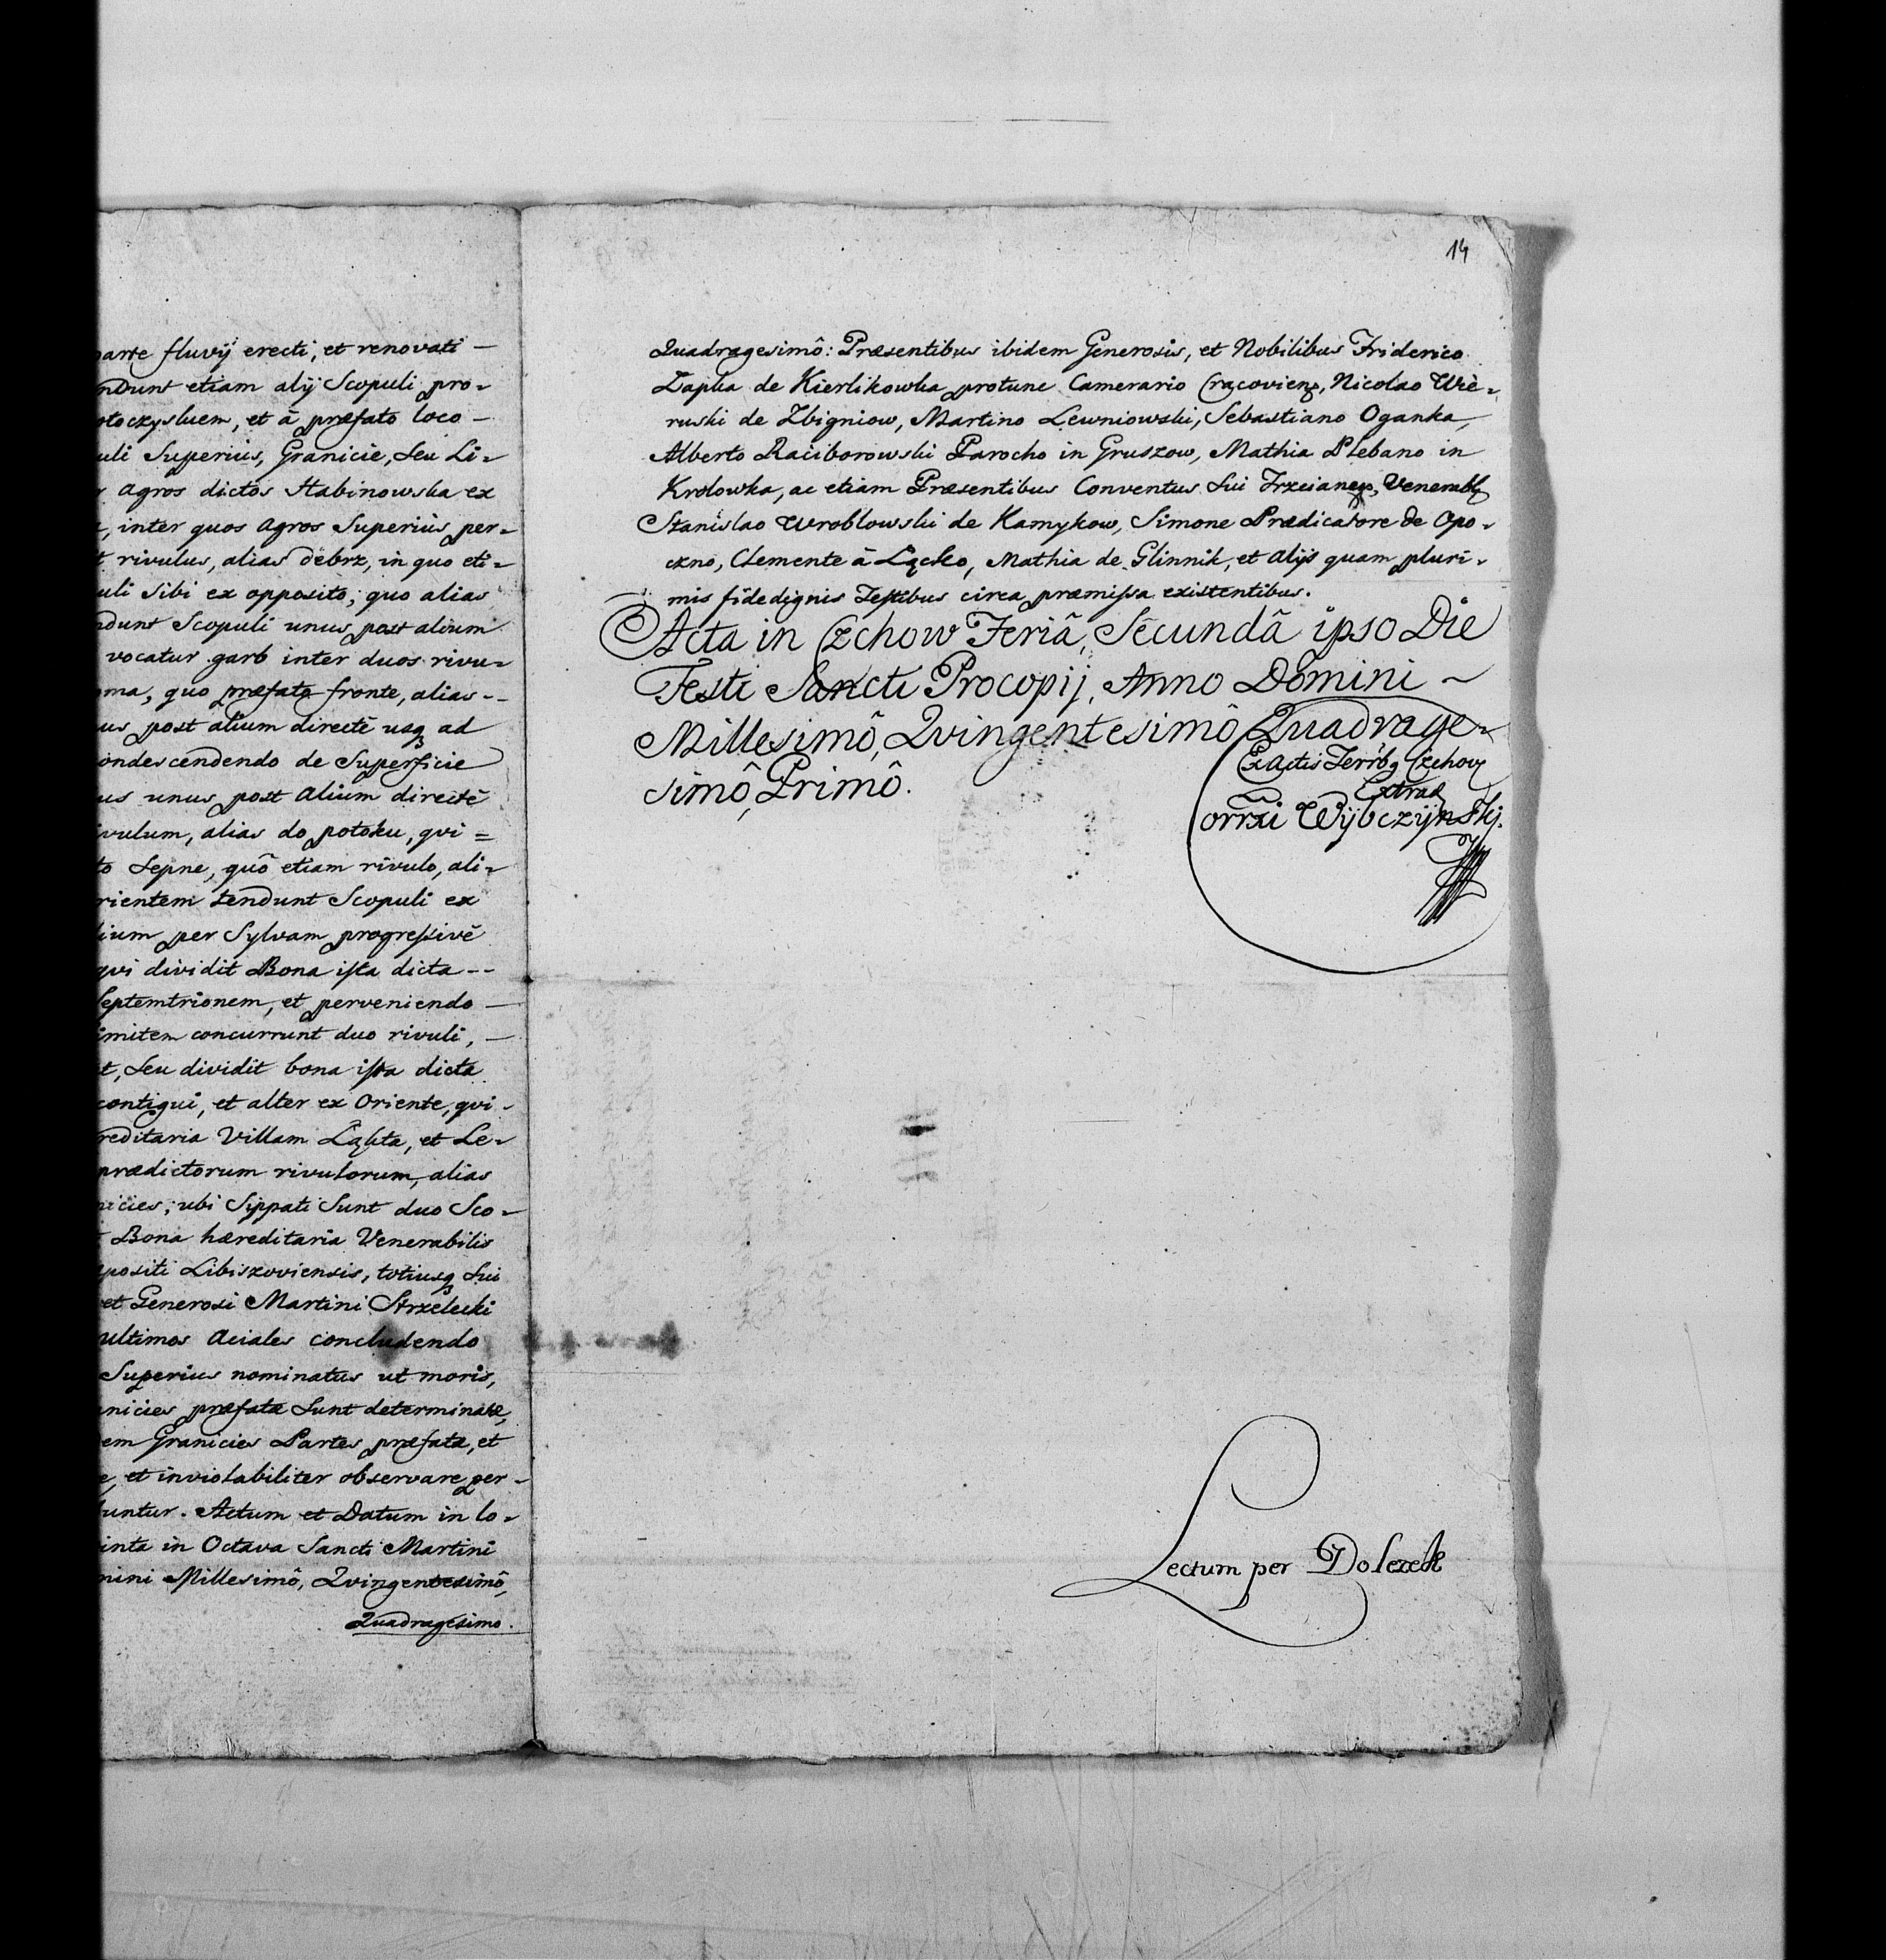 parte fluvij erecti, et renovati —
ndunt etiam alij Scopuli pro-
otoczyskiem, et â præfato loco —
uli Superiùs, Granicie, seu Li-
agros dictos Stabinowska ex
inter quos agros Superiùs per-
rivulus, alias debrz, in quo eti-
uli sibi ex opposito; quo alias
ndunt Scopuli unus post alium
vocatur garb inter duos rivu-
oma, quo præfata fronte, alias --
us post alium directè usq ad
ondescendendo de Superficie
us unus post alium directè
ivulum, alias do potoku, qvi =
to Sepne, quô etiam rivulo, ali-
rientem tendunt Scopuli ex
lium per Sylvam progressivè
qvi dividit Bona ista dicta --
Septemtrionem, et perveniendo —
imitem concurrunt duo rivuli, —
t, seu dividit bona ista dicta
contigui, et alter ex Oriente, qvi -
reditaria Villam Łąkta, et Le-
prædictorum rivulorum, alias
nicies; ubi Sippati sunt duo Sco-
Bona hæreditaria Venerabilis
positi Libiszoviensis, totiusq sui
et Generosi Martini Strzelecki
ultimos Aciales concludendo
Superius nominatus ut moris,
nicies præfatæ sunt determinatæ,
em Granicies Partes præfatæ, et
e, et inviolabiliter observare per-
buntur. Actum et Datum in lo-
inta in Octava Sancti Martini
mini Millesimô, Qvingentesimô,
Quadragesimo.
14
Quadragesimô: Præsentibus ibidem Generosis, et Nobilibus Friderico
Łapka de Kierlikowka protunc Camerario Cracovien, Nicolao Wie-
ruski de Zbigniow, Martino Lewniowski, Sebastiano Oganka,
Alberto Raciborowski Parocho in Gruszow, Mathia Plebano in
Krolowka, ac etiam Præsentibus Conventus sui Trzciane, Venerabl
Stanislao Wroblowski de Kamykow, Simone Prædicatore de Opo-
czno, Clemente â Lącko, Mathia de Glinnik, et alijs quam pluri-
mis fidedignis Testibus circa præmissa existentibus.
Acta in Czchow Feriâ, Secundâ ipso Die
Festi Sancti Procopij, Anno Domini ~
Millesimô, Qvingentesimô Quadrage-
simô, Primô.
Ex Actis Terrb Czchov
Extrad
Wijbczijnskj.
Lectum per Dolezek